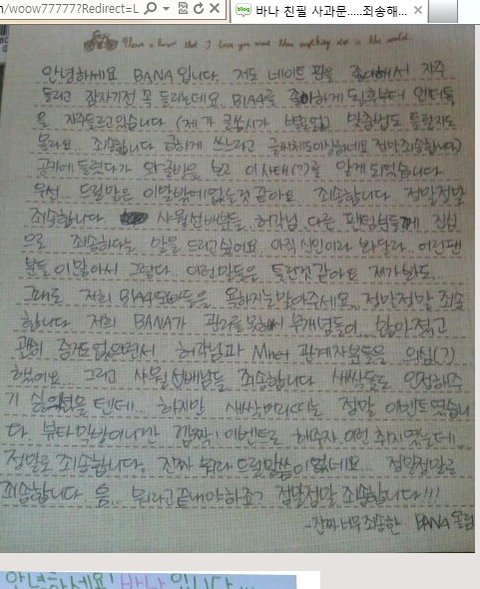 woow77777?Redirect=L
바나 친필 사과문.....죄송해...
Please know that I love you more than anything else in the world.
안녕하세요 BANA입니다. 저도 네이트 판을 좋아해서 자주
들리고 잠자기전 꼭 들리는데요 B1A4를 좋아하게 된후부터 인터넷
을 자주들르고있습니다 (제가 글씨가 별로없고 맞춤법도 틀릴지도
몰라요 죄송합니다 급하게 쓰느라고 글씨체도이상한네요 정말죄송합니다)
들렸다가 글을 보고 이사태(?)를 알게되었습니다
우선 드릴말은 이말밖에없는것 같아요 죄송합니다 정말정말
죄송합니다 샤월선배님들 허각님 다른 팬덤분들께 진심
으로 죄송하다는 말을 드리고싶어요 아직신인이라 봐달라. 이런팬
분들이많아서 그렇다. 이런말들은 틀린것같아요 제가봐도.
그래도 저희 B1A4오빠들은 욕하지는말아주세요 정말정말 죄송
합니다 저희 BANA가 관리를못해서 무개념들이 많아졌고
괜히 증거도없으면서 허각님과 Mnet 관계자분들을 의심(?)
했어요. 그리고 샤월선배님들 죄송합니다 새싹들도 인정해주
기 싫으셨을텐데.. 하지만 새싹머리띠는 정말 이벤트였습니
다 뷰티풀막방이니깐 깜짝! 이벤트로 해주자 이런 취지였는데..
정말로 죄송합니다. 진짜 뭐라 드릴말씀이없네요... 정말정말로
죄송합니다 음.. 뭐라고끝내야하죠? 정말정말 죄송합니다!!!
-진짜너무죄송한 BANA 올림
안녕하세요! 바나입니다...